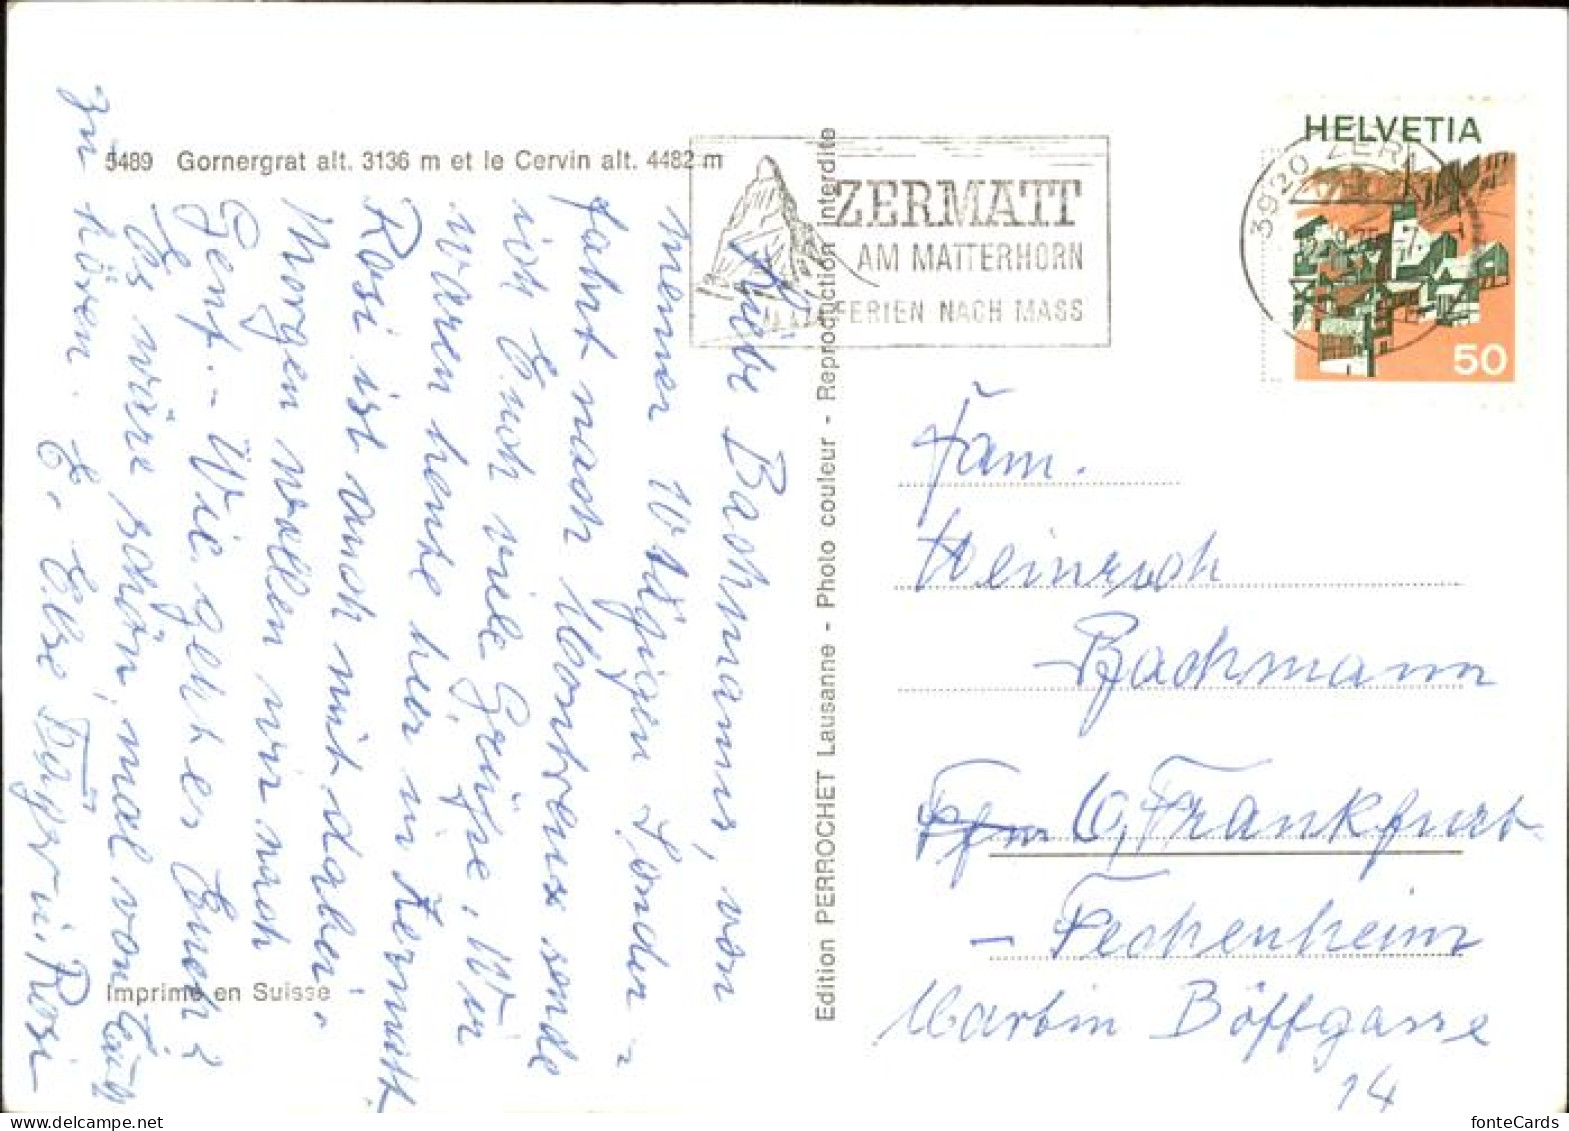 5489 Gornergrat alt. 3136 m et le Cervin alt. 4482 m
ZERMATT
AM MATTERHORN
FERIEN NACH MASS
HELVETIA
50
3920 ZERMATT
Liebe Bachmanns, von
meiner 10 tägigen Sonder-
fahrt nach Montreux sende
ich Euch viele Grüße, Wir
waren heute hier in Zermatt.
Rosi ist auch mit dabei.
Morgen wollen wir nach
Genf. - Wie geht es Euch?
Es wäre schön, mal von Euch
zu hören.
E. Else u. Rosi
Fam.
Heinrich
Bachmann
6, Frankfurt
- Fechenheim
Martin Böffgasse
14
Edition PERROCHET Lausanne - Photo couleur - Reproduction interdite
Imprimé en Suisse
fonteCards